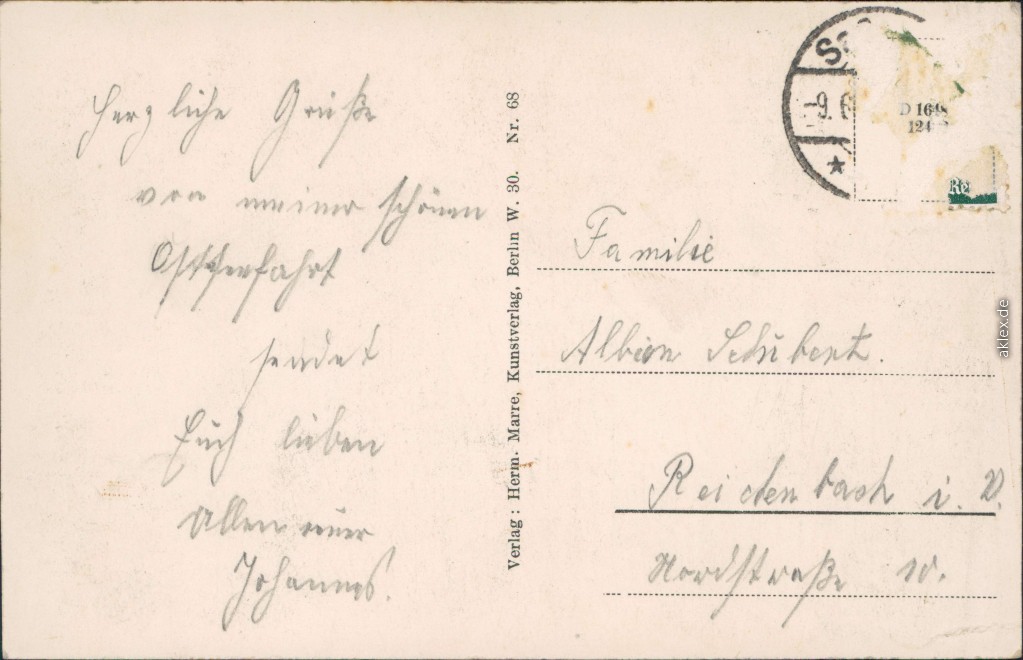 Herzliche Grüße
von meiner schönen
sendet
Euch lieben
Allen euer
Johannes.
Verlag: Herm. Marre, Kunstverlag, Berlin W. 30. Nr. 68
-9. 6
D 164
124
Re
Familie
Albin Schubert.
Reichenbach i. V.
Nordstraße 10.
aklex.de